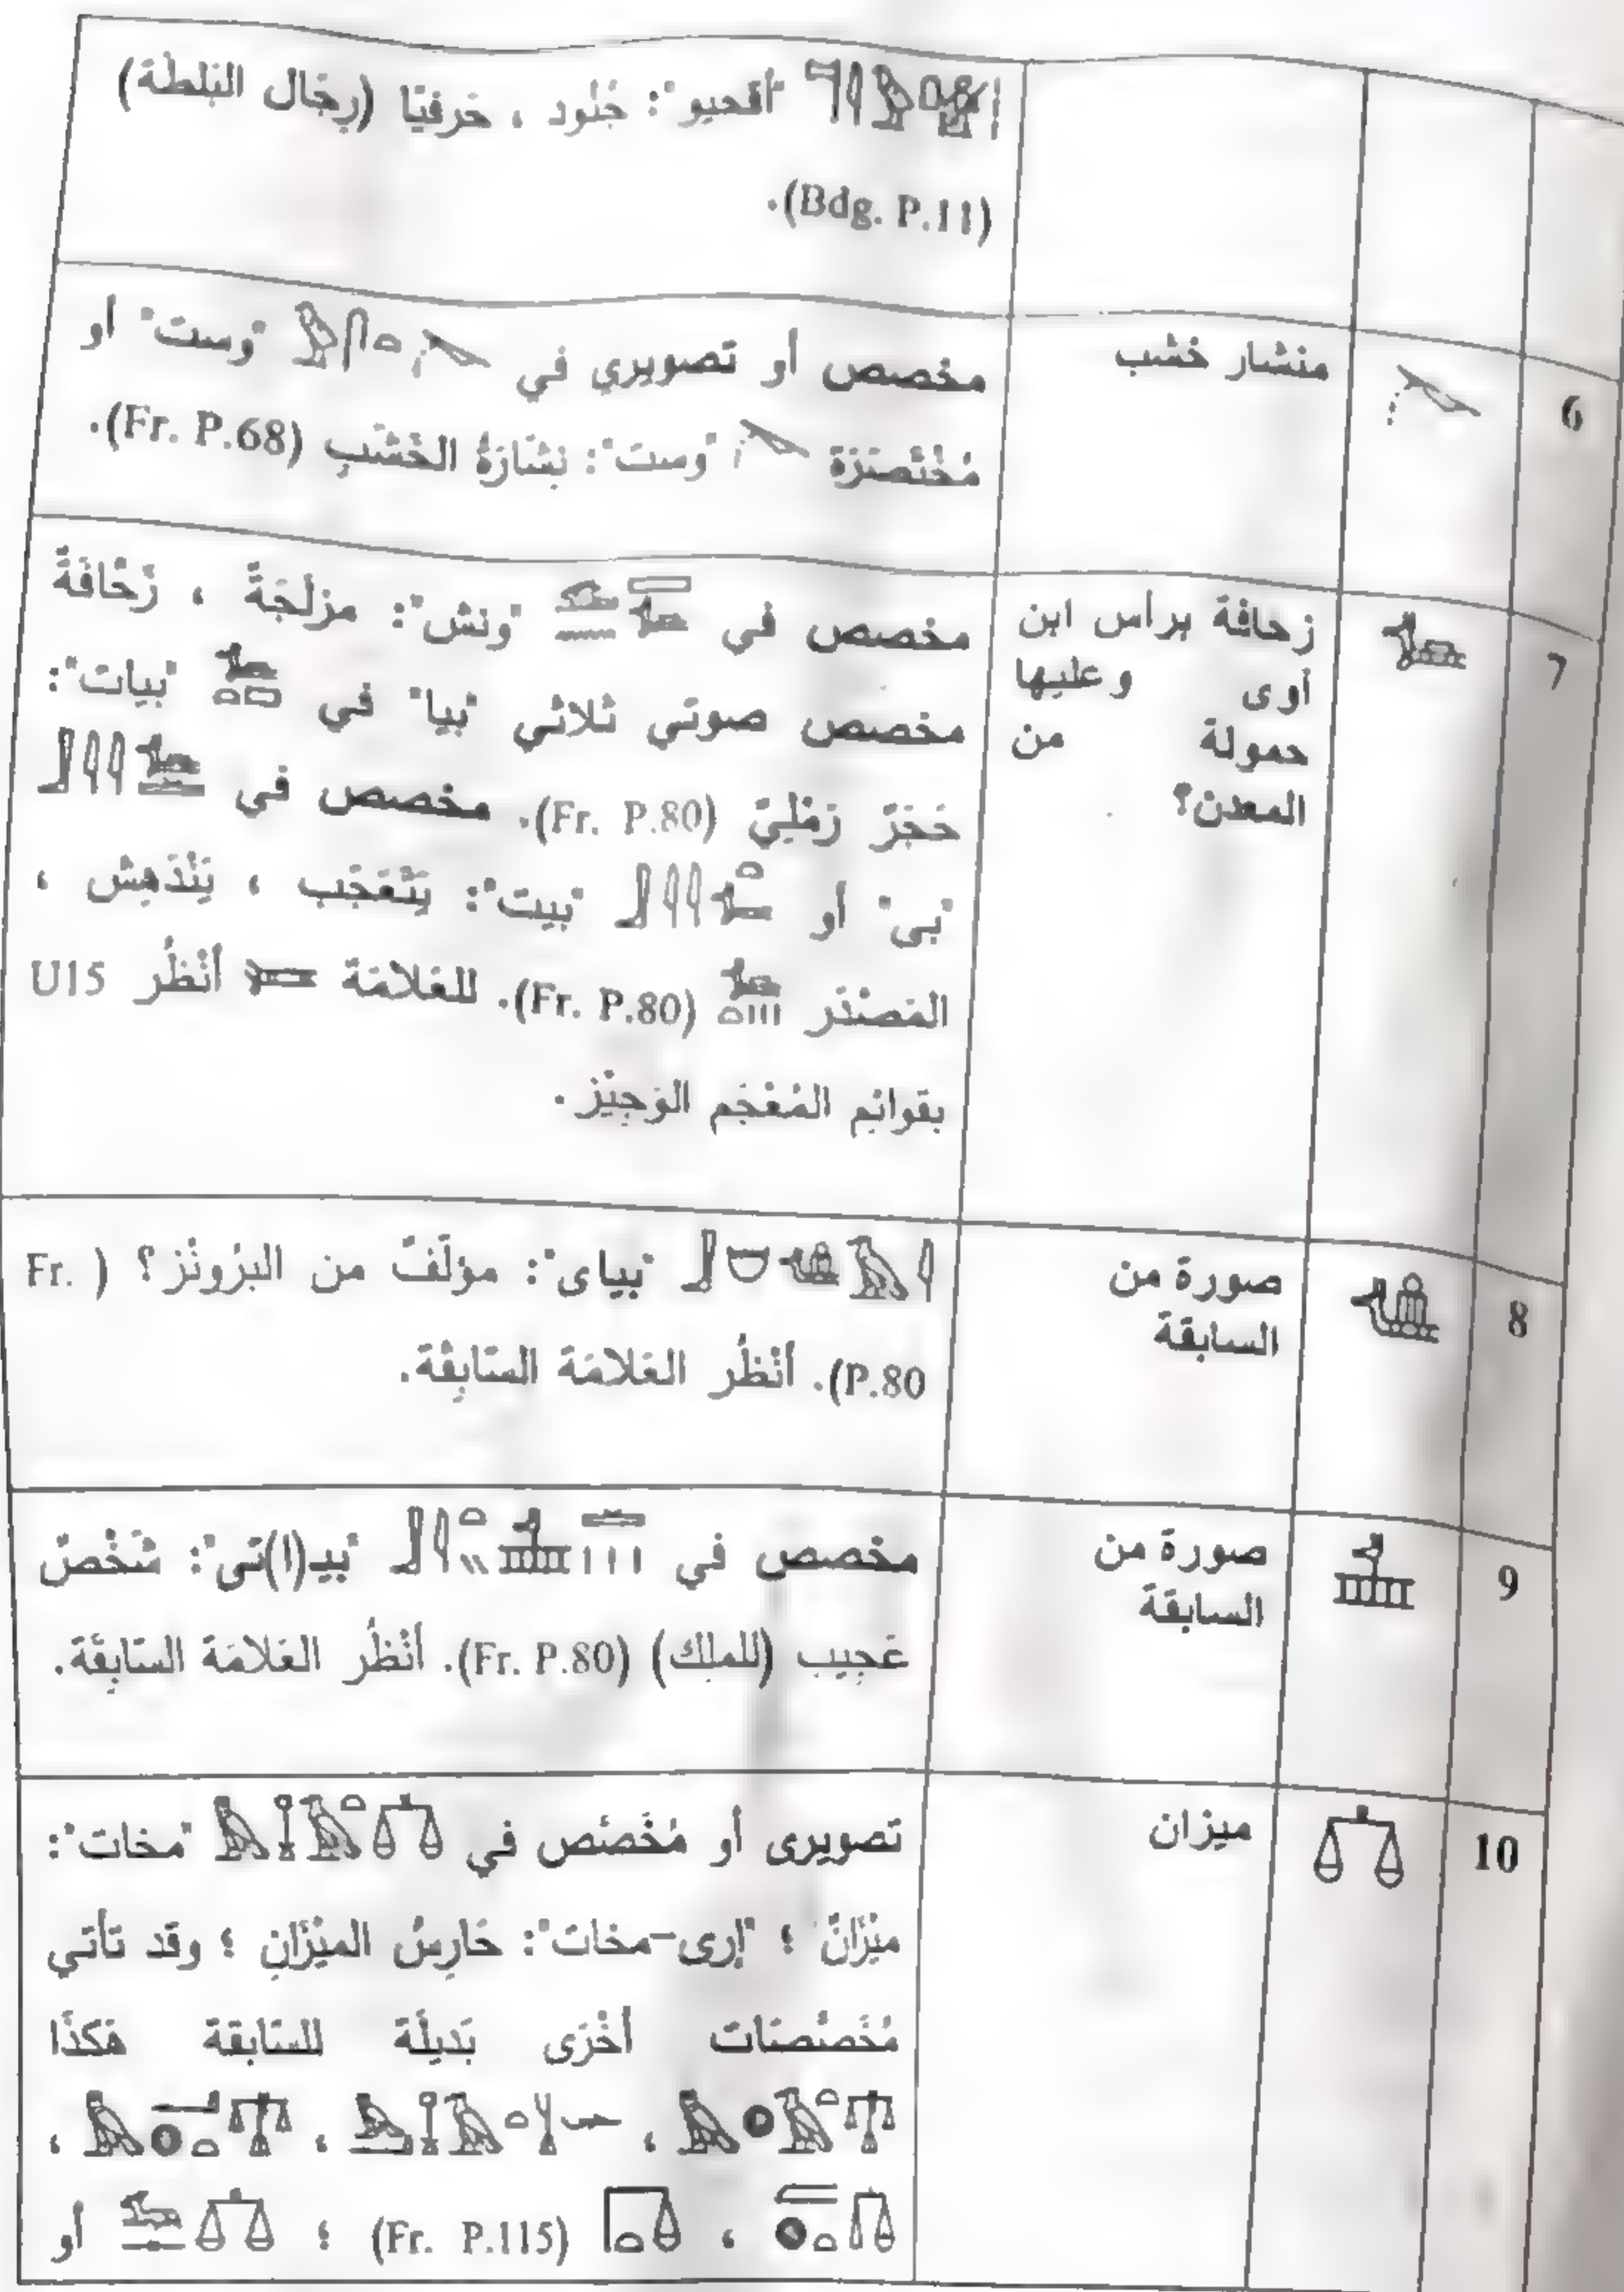 "أقحيو": جُنُود ، حَرفيًا (رِجَال البَلطَة)
(Bdg. P.11).
6
منشار خشب
مخصص أو تصويري في "وست" أو
مُخْتَصَرَة "وست": نِشَارَةُ الخَشَبِ (Fr. P.68).
7
زحافة برأس ابن
أوى وعليها
حمولة من
المعدن؟
مخصص في "ونش": مزلَجَةً ، زَحَّافَةً
مخصص صوتي ثلاثي "بيا" في "بيات":
حَجَرٌ رَمْلِيّ (Fr. P.80). مخصص في
"بى" أو "بيت": يَتَعَجَّب ، يَنْدَهِش ،
المَصْدَر (Fr. P.80). للعَلامَة أنْظُر U15
بقوائم المُعْجَم الوَجِيْز.
8
صورة من
السابقة
"بياى": مؤلَّفٌ من البرُونْز؟ (Fr.
P.80). أنْظُر العَلامَة السَّابِقَة.
9
صورة من
السابقة
مخصص في "بيـ(ا)تى": شَخْصٌ
عَجِيب (للملِك) (Fr. P.80). أنْظُر العَلامَة السَّابِقَة.
10
ميزان
تصويرى أو مُخَصَّص في "مخات":
ميْزَانٌ ؛ "إرى-مخات": حَارِسُ الميْزَانِ ؛ وقد تأتي
مُخَصَّصَات أخْرَى بَديلَة للسَّابقة هَكذَا
، ، ،
، (Fr. P.115) ؛ أو